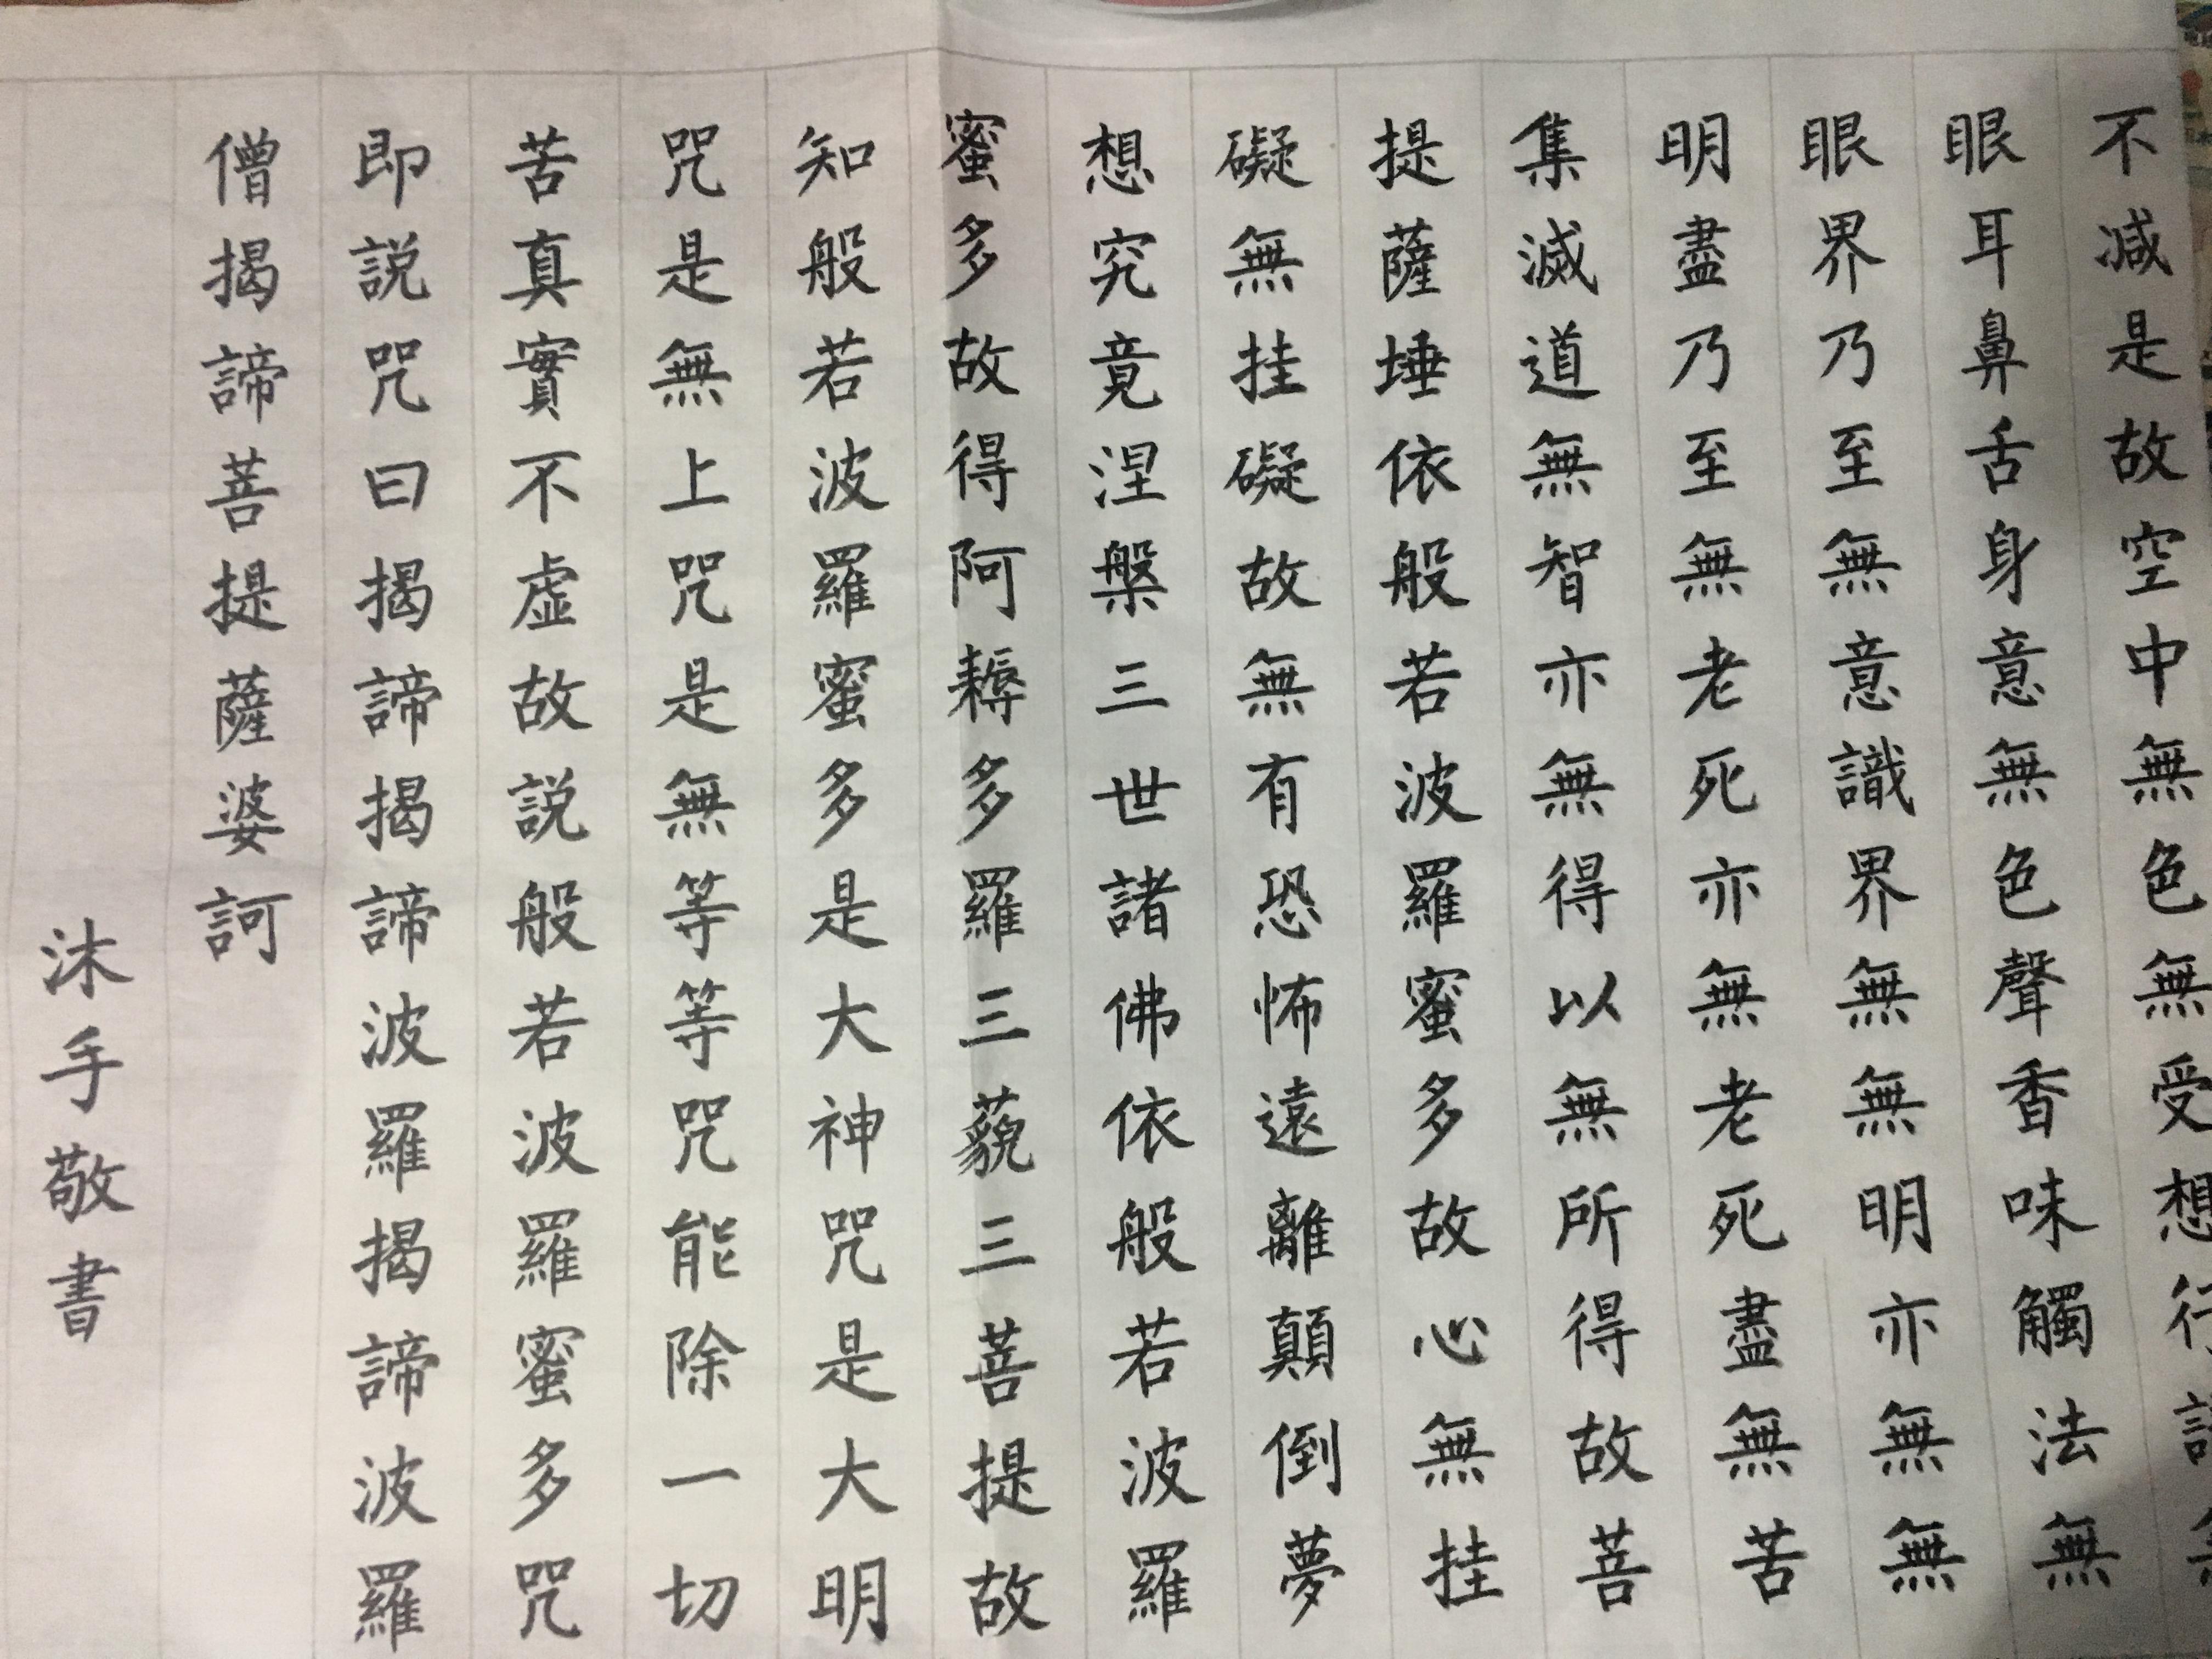 不減是故空中無色無受想行
眼耳鼻舌身意無色聲香味觸法無
眼界乃至無意識界無無明亦無無
明盡乃至無老死亦無老死盡無苦
集滅道無智亦無得以無所得故菩
提薩埵依般若波羅蜜多故心無挂
礙無挂礙故無有恐怖遠離顛倒夢
想究竟涅槃三世諸佛依般若波羅
蜜多故得阿耨多羅三藐三菩提故
知般若波羅蜜多是大神咒是大明
咒是無上咒是無等等咒能除一切
苦真實不虛故說般若波羅蜜多咒
即說咒曰揭諦揭諦波羅揭諦波羅
僧揭諦菩提薩婆訶
沐手敬書